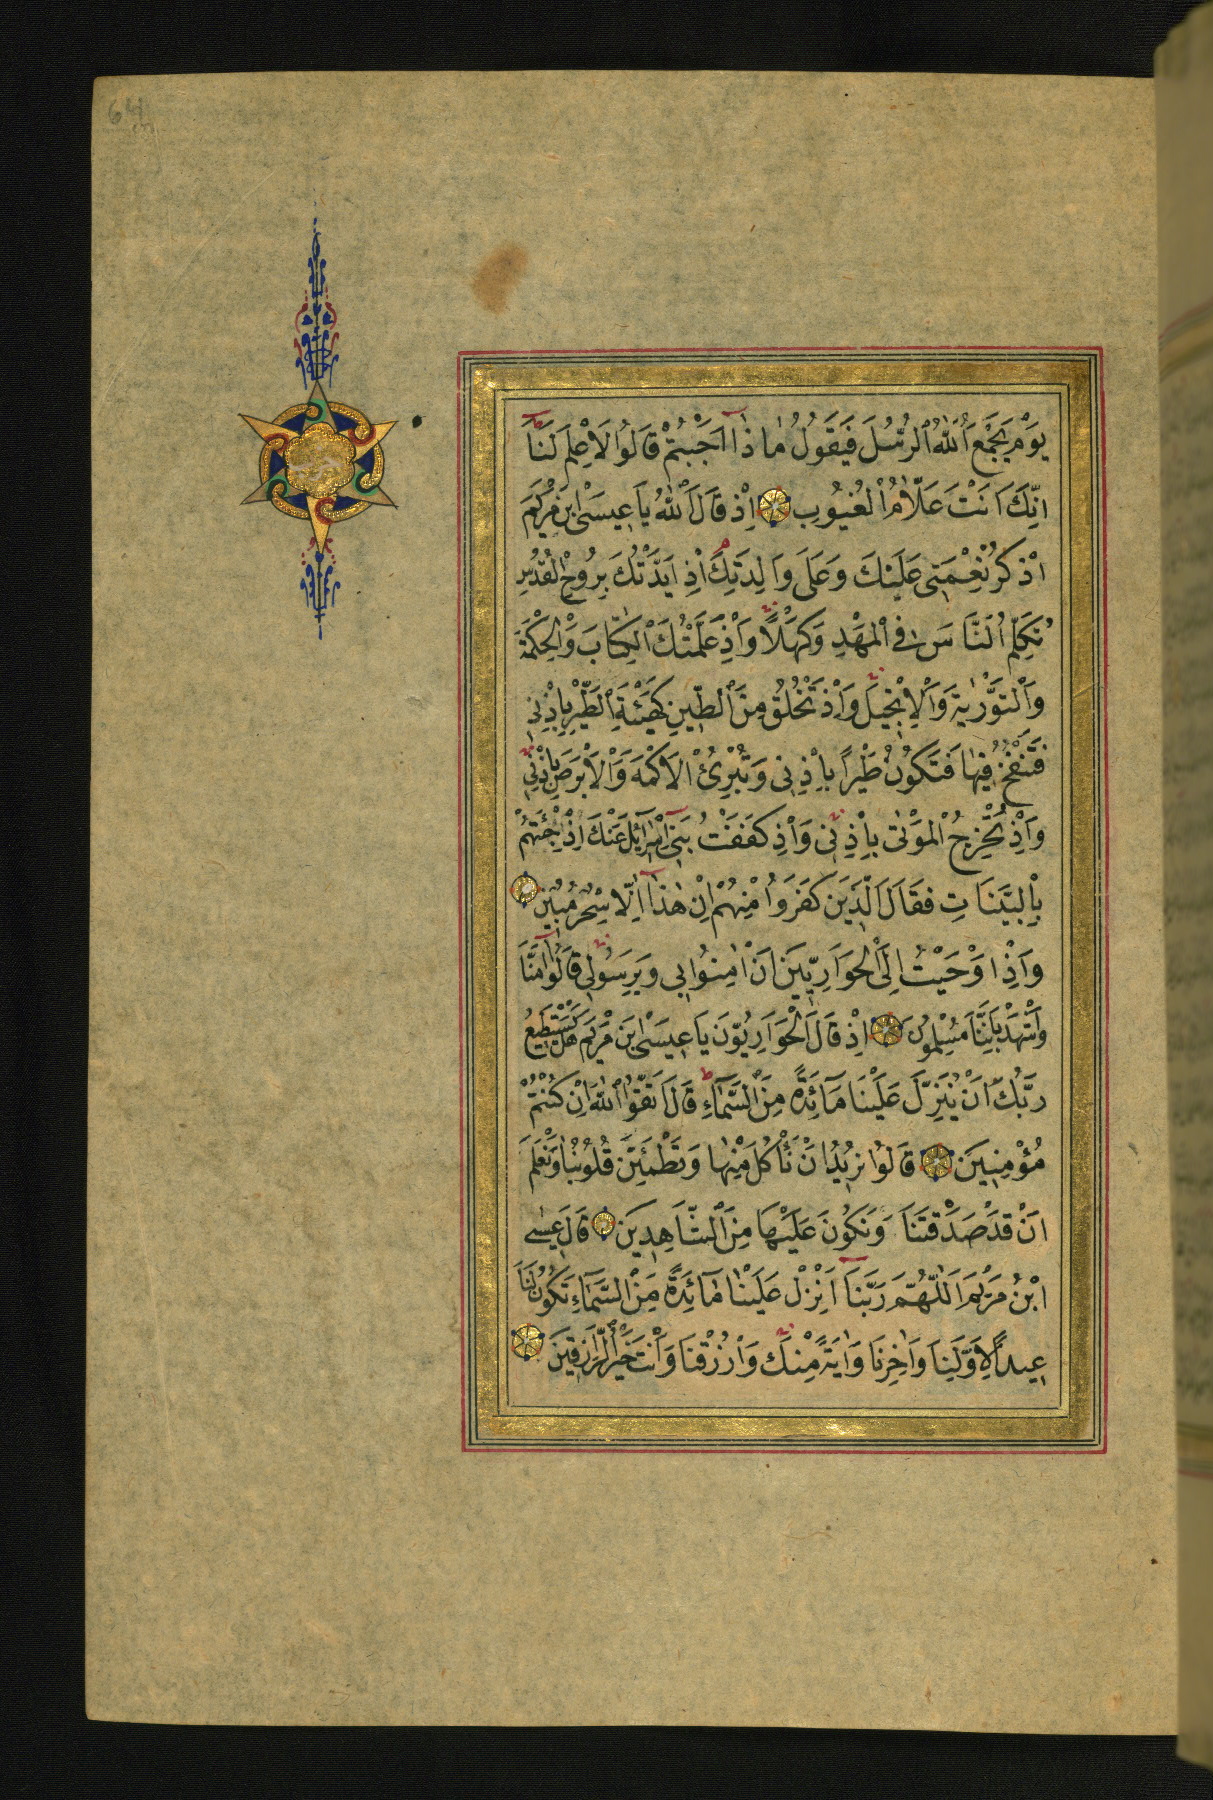 64
يَوْمَ يَجْمَعُ اللّٰهُ الرُّسُلَ فَيَقُولُ مَاذَٓا اُجِبْتُمْ قَالُوا لَا عِلْمَ لَنَا
اِنَّكَ اَنْتَ عَلَّامُ الْغُيُوبِ اِذْ قَالَ اللّٰهُ يَا عِيسَى ابْنَ مَرْيَمَ
اذْكُرْ نِعْمَتِى عَلَيْكَ وَعَلَى وَالِدَتِكَ اِذْ اَيَّدْتُكَ بِرُوحِ الْقُدُسِ
تُكَلِّمُ النَّاسَ فِى الْمَهْدِ وَكَهْلًا وَاِذْ عَلَّمْتُكَ الْكِتَابَ وَالْحِكْمَةَ
وَالتَّوْرٰيةَ وَالْاِنْجِيلَ وَاِذْ تَخْلُقُ مِنَ الطِّينِ كَهَيْئَةِ الطَّيْرِ بِاِذْنِى
فَتَنْفُخُ فِيهَا فَتَكُونُ طَيْرًا بِاِذْنِى وَتُبْرِئُ الْاَكْمَهَ وَالْاَبْرَصَ بِاِذْنِى
وَاِذْ تُخْرِجُ الْمَوْتٰى بِاِذْنِى وَاِذْ كَفَفْتُ بَنِٓى اِسْرَٓائِلَ عَنْكَ اِذْ جِئْتَهُمْ
بِالْبَيِّنَاتِ فَقَالَ الَّذِينَ كَفَرُوا مِنْهُمْ اِنْ هٰذَٓا اِلَّا سِحْرٌ مُبِينٌ
وَاِذْ اَوْحَيْتُ اِلَى الْحَوَارِيِّينَ اَنْ اٰمِنُوا بِى وَبِرَسُولِى قَالُٓوا اٰمَنَّا
وَاشْهَدْ بِاَنَّنَا مُسْلِمُونَ اِذْ قَالَ الْحَوَارِيُّونَ يَا عِيسَى ابْنَ مَرْيَمَ هَلْ يَسْتَطِيعُ
رَبُّكَ اَنْ يُنَزِّلَ عَلَيْنَا مَٓائِدَةً مِنَ السَّمَٓاءِ قَالَ اتَّقُوا اللّٰهَ اِنْ كُنْتُمْ
مُؤْمِنِينَ قَالُوا نُرِيدُ اَنْ نَأْكُلَ مِنْهَا وَتَطْمَئِنَّ قُلُوبُنَا وَنَعْلَمَ
اَنْ قَدْ صَدَقْتَنَا وَنَكُونَ عَلَيْهَا مِنَ الشَّاهِدِينَ قَالَ عِيسَى
ابْنُ مَرْيَمَ اللّٰهُمَّ رَبَّنَٓا اَنْزِلْ عَلَيْنَا مَٓائِدَةً مِنَ السَّمَٓاءِ تَكُونُ لَنَا
عِيدًا لِاَوَّلِنَا وَاٰخِرِنَا وَاٰيَةً مِنْكَ وَارْزُقْنَا وَاَنْتَ خَيْرُ الرَّازِقِينَ